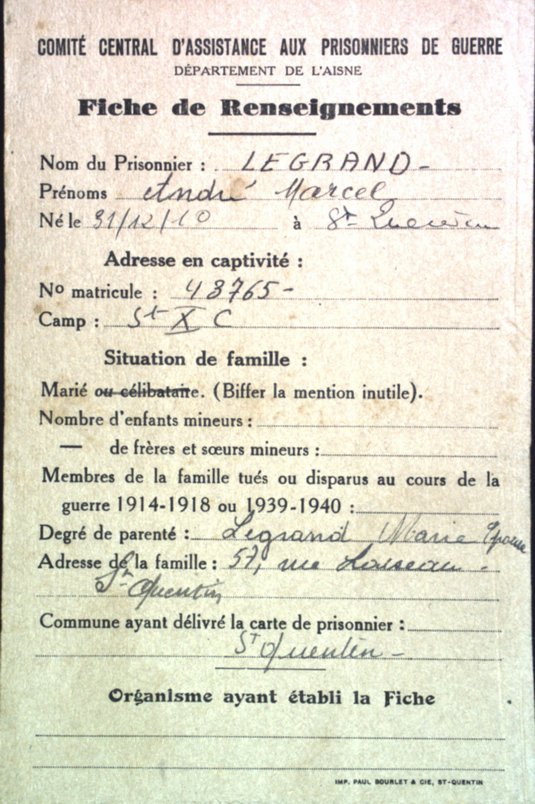 COMITÉ CENTRAL D'ASSISTANCE AUX PRISONNIERS DE GUERRE
DÉPARTEMENT DE L'AISNE
Fiche de Renseignements
Nom du Prisonnier : LEGRAND -
Prénoms André Marcel
Né le 31/12/10 à St Quentin
Adresse en captivité :
No matricule : 43765 -
Camp : St X C
Situation de famille :
Marié ou célibataire. (Biffer la mention inutile).
Nombre d'enfants mineurs :
— de frères et sœurs mineurs :
Membres de la famille tués ou disparus au cours de la
guerre 1914-1918 ou 1939-1940 :
Degré de parenté : Legrand Marie épouse
Adresse de la famille : 57, rue
St Quentin
Commune ayant délivré la carte de prisonnier :
St Quentin -
Organisme ayant établi la Fiche
IMP. PAUL BOURLET & CIE, ST-QUENTIN